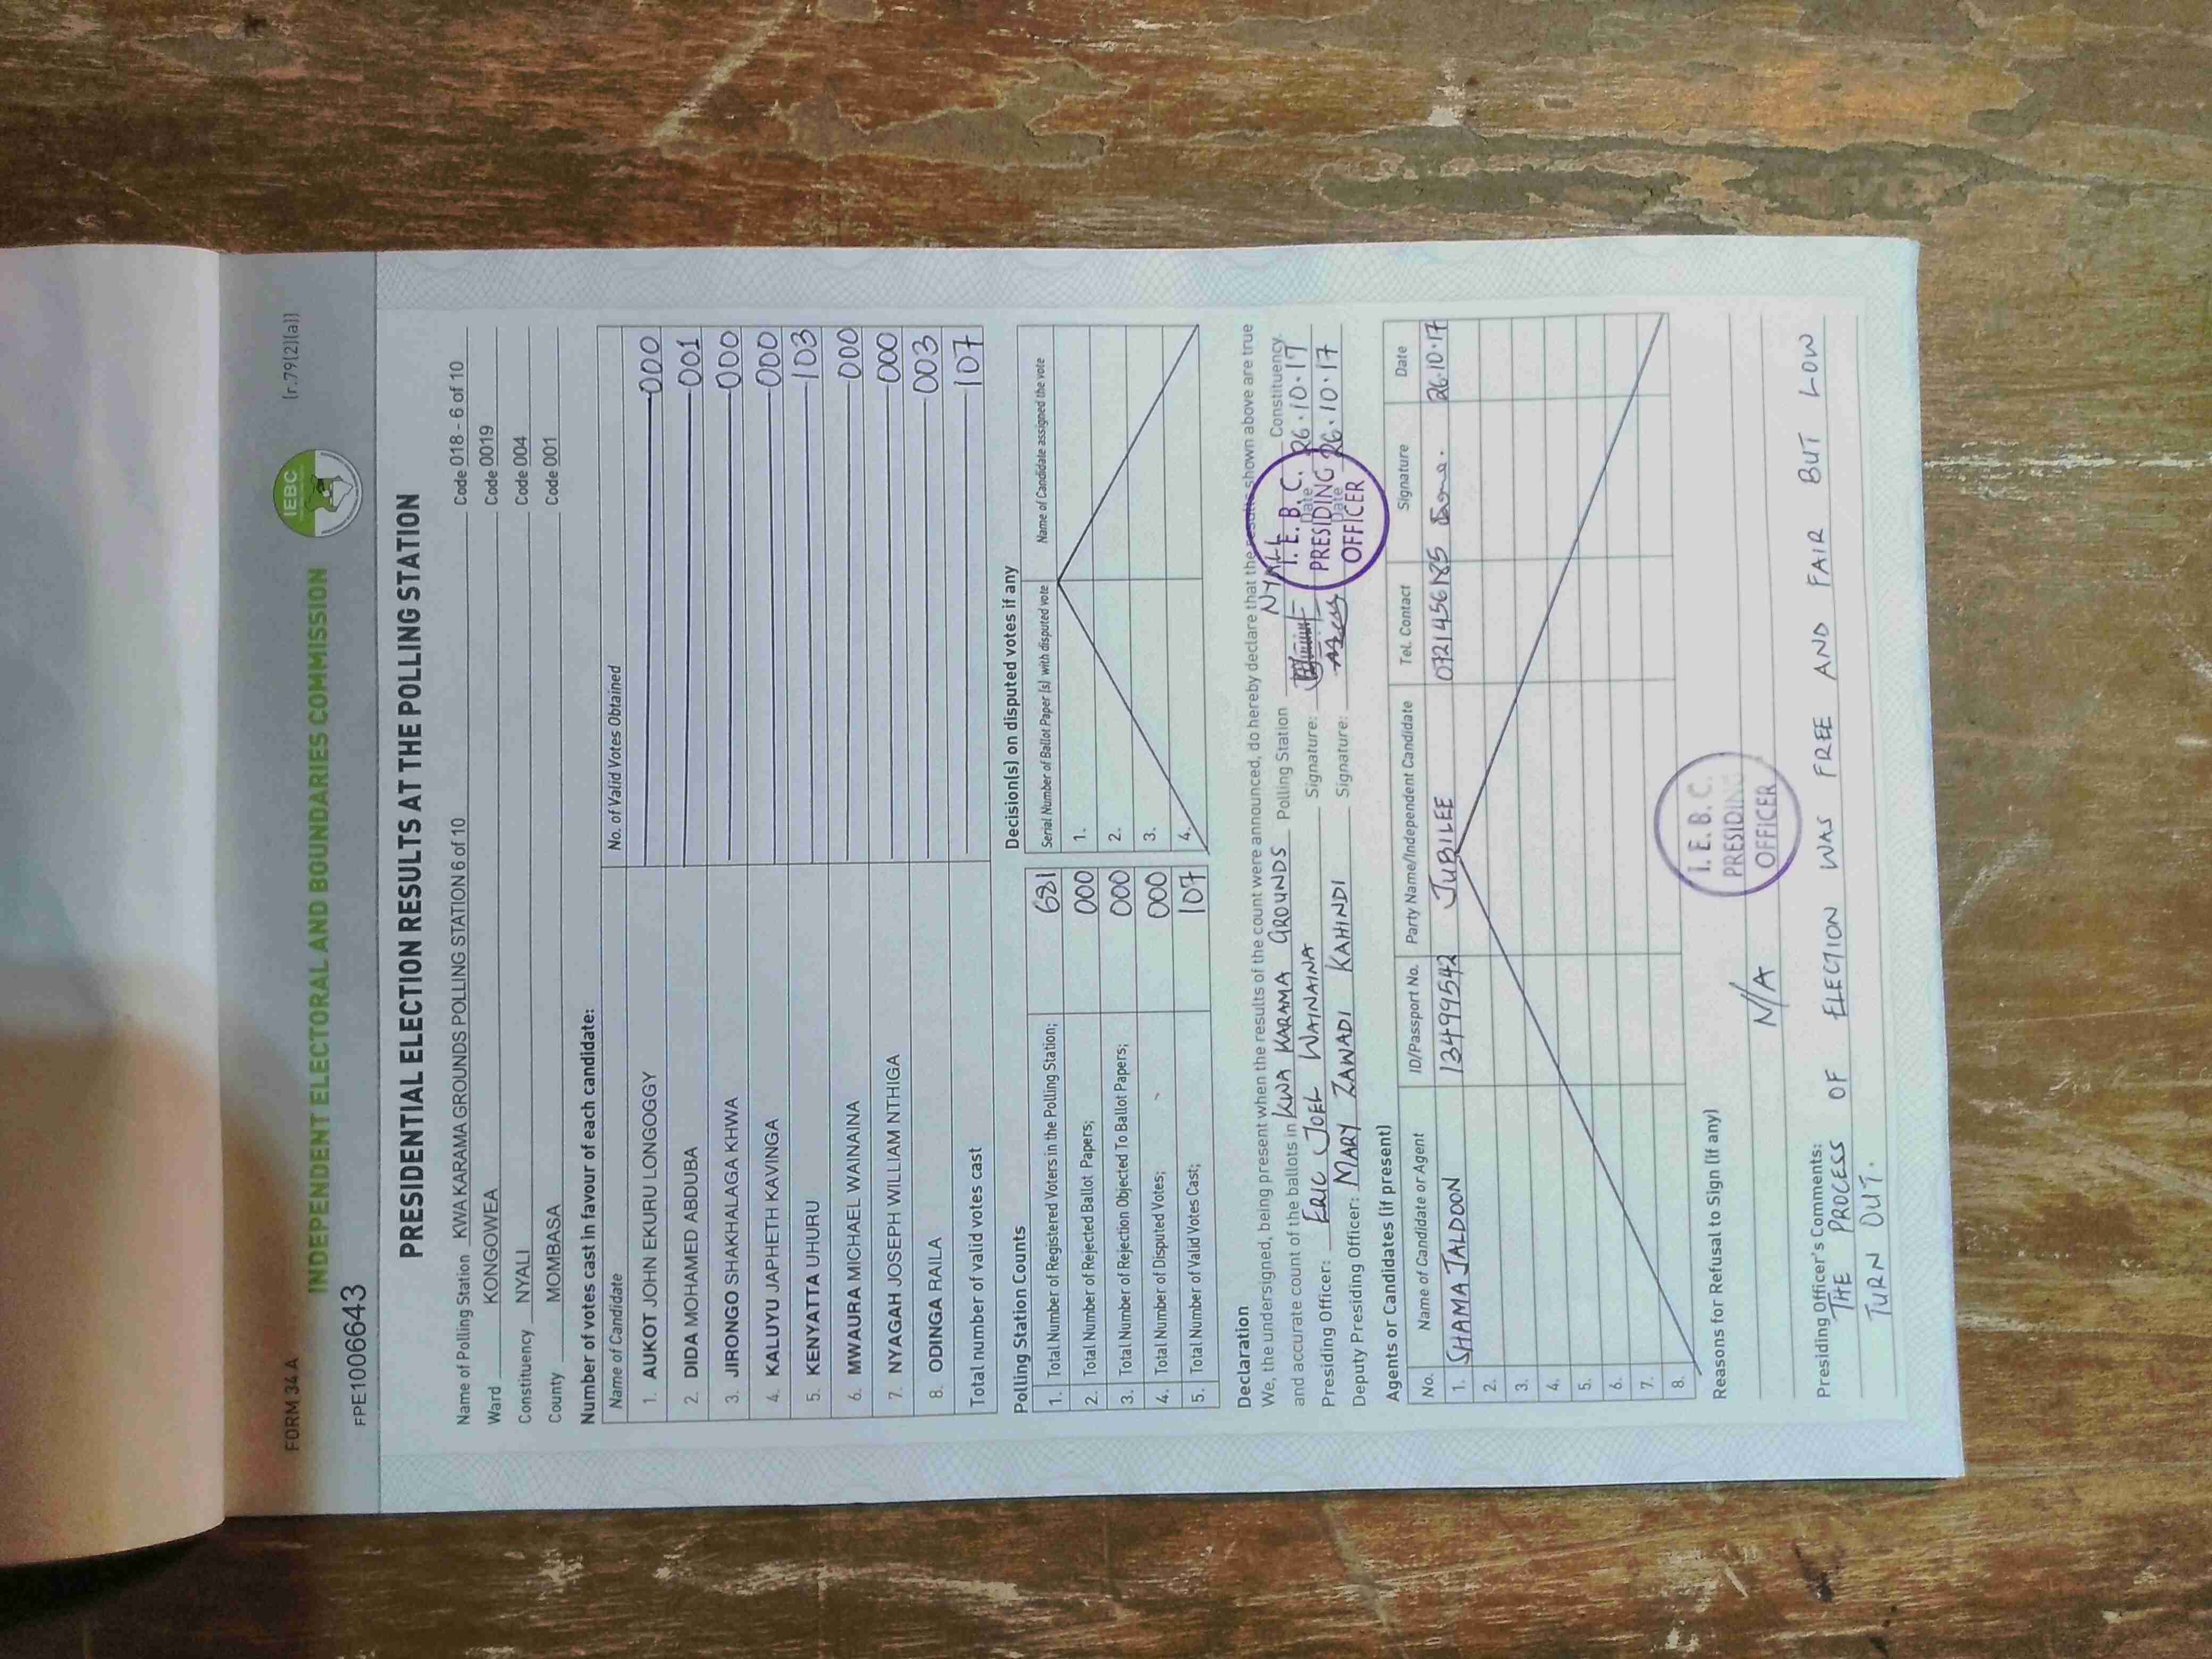 FORM 34A
(r.79(2)(a))
INDEPENDENT ELECTORAL AND BOUNDARIES COMMISSION
IEBC
FPE1006643
PRESIDENTIAL ELECTION RESULTS AT THE POLLING STATION
Name of Polling Station KWA KARAMA GROUNDS POLLING STATION 6 of 10 Code 018 - 6 of 10
Ward KONGOWEA Code 0019
Constituency NYALI Code 004
County MOMBASA Code 001
Number of votes cast in favour of each candidate:
Name of Candidate No. of Valid Votes Obtained
1. AUKOT JOHN EKURU LONGOGGY 000
2. DIDA MOHAMED ABDUBA 001
3. JIRONGO SHAKHALAGA KHWA 000
4. KALUYU JAPHETH KAVINGA 000
5. KENYATTA UHURU 103
6. MWAURA MICHAEL WAINAINA 000
7. NYAGAH JOSEPH WILLIAM NTHIGA 000
8. ODINGA RAILA 003
Total number of valid votes cast 107
Polling Station Counts
1. Total Number of Registered Voters in the Polling Station; 681
2. Total Number of Rejected Ballot Papers; 000
3. Total Number of Rejection Objected To Ballot Papers; 000
4. Total Number of Disputed Votes; 000
5. Total Number of Valid Votes Cast; 107
Decision(s) on disputed votes if any
Serial Number of Ballot Paper (s) with disputed vote Name of Candidate assigned the vote
1.
2.
3.
4.
Declaration
We, the undersigned, being present when the results of the count were announced, do hereby declare that the results shown above are true
and accurate count of the ballots in KWA KARAMA GROUNDS Polling Station NYALI Constituency.
Presiding Officer: ERIC JOEL WAINAINA Signature: Date 26.10.17
Deputy Presiding Officer: MARY ZAWADI KAHINDI Signature: Date 26.10.17
I. E. B. C.
PRESIDING
OFFICER
Agents or Candidates (if present)
No. Name of Candidate or Agent ID/Passport No. Party Name/Independent Candidate Tel. Contact Signature Date
1. SHAMA JALDOON 13499542 JUBILEE 0721456185 26.10.17
2.
3.
4.
5.
6.
7.
8.
I. E. B. C.
PRESIDING
OFFICER
Reasons for Refusal to Sign (if any)
N/A
Presiding Officer's Comments:
THE PROCESS OF ELECTION WAS FREE AND FAIR BUT LOW
TURN OUT.